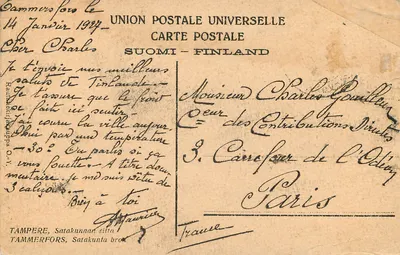 UNION POSTALE UNIVERSELLE
CARTE POSTALE
SUOMI - FINLAND
Tammersfors le
14 Janvier 1927
Cher Charles
Je t'envoie mes meilleurs
saluts de Finlande.
Je t'assure que le froid
se fait ici sentir
J'ai couru la ville aujour
d'hui par une température
- 30° Tu parles si ça
vous fouette. A titre docu
mentaire je me suis vêtu de
3 caleçons.
Bien à toi
Maurice
Monsieur Charles
des Contributions Directes
3. Carrefour de l'Odéon
Paris
France
TAMPERE, Satakunnan silta
TAMMERFORS, Satakunta bro